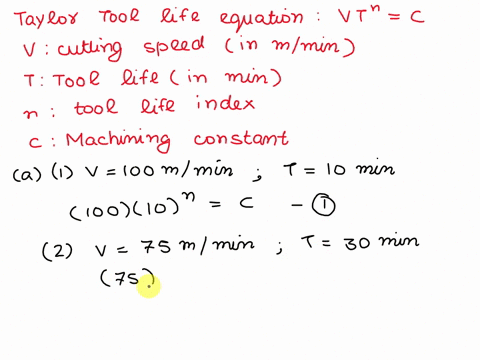 Taylor Tool life equation : VTⁿ = C
V : cutting speed (in m/min)
T : Tool life (in min)
n : tool life index
C : Machining constant
(a) (1) V = 100 m/min ; T = 10 min
(100)(10)ⁿ = C - ①
(2) V = 75 m/min ; T = 30 min
(75)